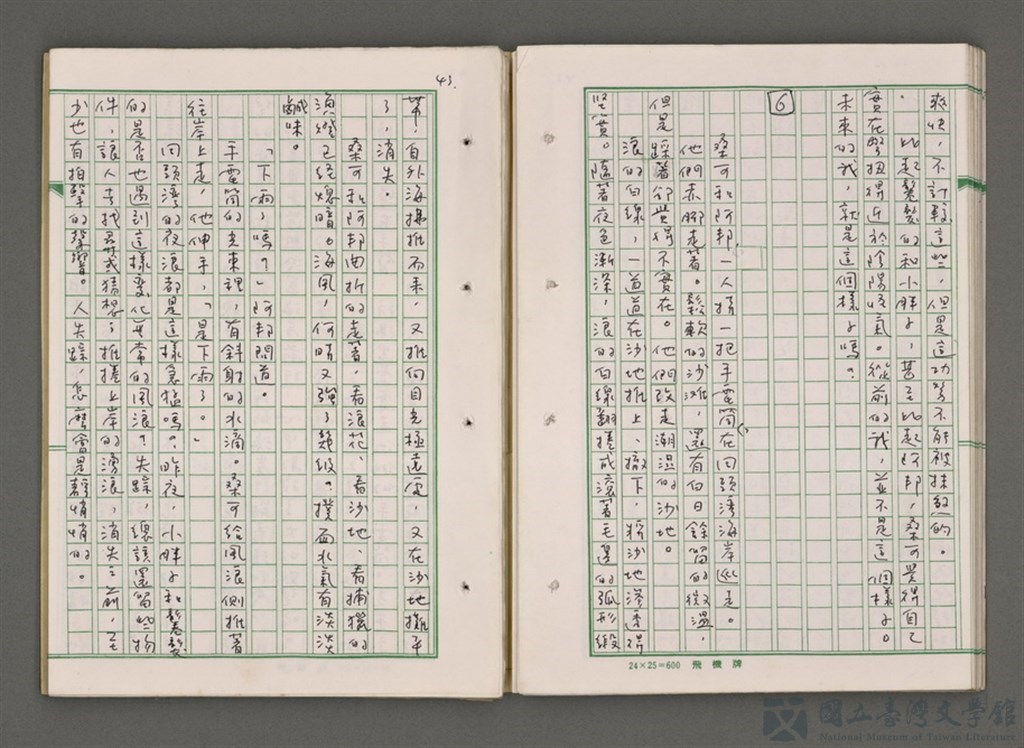 爽快，不計較這些，但是這功勞不能被抹煞的。
比起鬈髮的和小胖子，甚至比起阿邦，桑可覺得自己
實在彆扭得近於陰陽怪氣。從前的我，並不是這個樣子。
未來的我，就是這個樣子嗎？
6
桑可和阿邦，一人揹一把手電筒在回頭灣海岸巡走。
他們赤腳走著。鬆軟的沙灘，還有白日餘留的微溫，
但是踩著卻覺得不實在。他們改走潮溫的沙地。
浪的白線，一道道在沙地推上、撤下，將沙地滲透得
堅實。隨著夜色漸深，浪的白線翻捲成滾著毛邊的弧形緞
24×25=600 飛機牌
43.
帶，自外海掃推而來，又推向目光極遠處，又在沙地攤平
了，消失。
桑可和阿邦曲折的走著，看浪花、看沙地、看捕鰻的
漁燈已經熄暗。海風，何時又強了幾級。撲面水氣有淡淡
鹹味。
「下雨了嗎？」阿邦問道。
手電筒的光束裡，有斜射的水滴。桑可給風浪側推著
往岸上走，他伸手，「是下雨了。」
回頭灣的夜浪都是這樣急猛嗎？昨夜，小胖子和鬈髮
的是否也遇到這樣變化無常的風浪？失蹤，總該還留些物
件，讓人去找尋或猜想，推捲上岸的湧浪，消失之前，至
少也有拍擊的聲響。人失蹤，怎麼會是靜悄悄的。
國立臺灣文學館
National Museum of Taiwan Literature